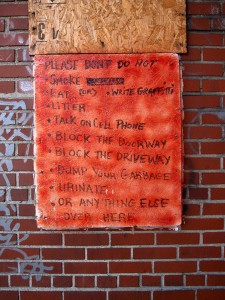 CV
PLEASE DON'T DO NOT
• SMOKE
• EAT (OR) • WRITE GRAFFITI
• LITTER
• TALK ON CELL PHONE
• BLOCK THE DOORWAY
• BLOCK THE DRIVEWAY
• DUMP YOUR GARBAGE
• URINATE
• OR ANYTHING ELSE
OVER HERE